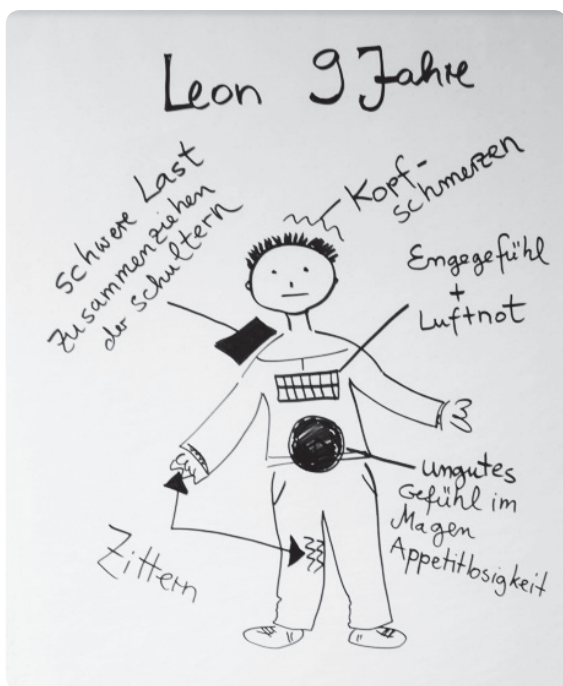 Leon 9 Jahre
schwere Last
zusammenziehen
der schultern
Kopf-
schmerzen
Engegefühl
+
Luftnot
ungutes
Gefühl im
Magen
Appetitlosigkeit
Zittern